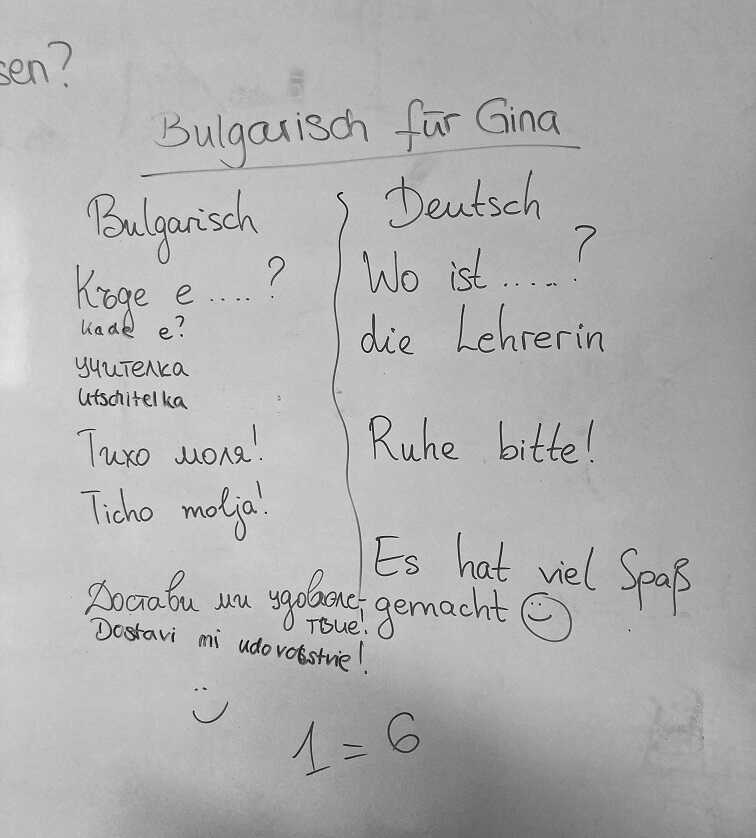 sen?
Bulgarisch für Gina
Bulgarisch
Къде е ....?
Kade e?
учителка
Utschitelka
Тихо моля!
Ticho molja!
Достави ми удоволс-
твие!
Dostavi mi udovolstvie!
Deutsch
Wo ist .....?
die Lehrerin
Ruhe bitte!
Es hat viel Spaß
gemacht
1 = 6